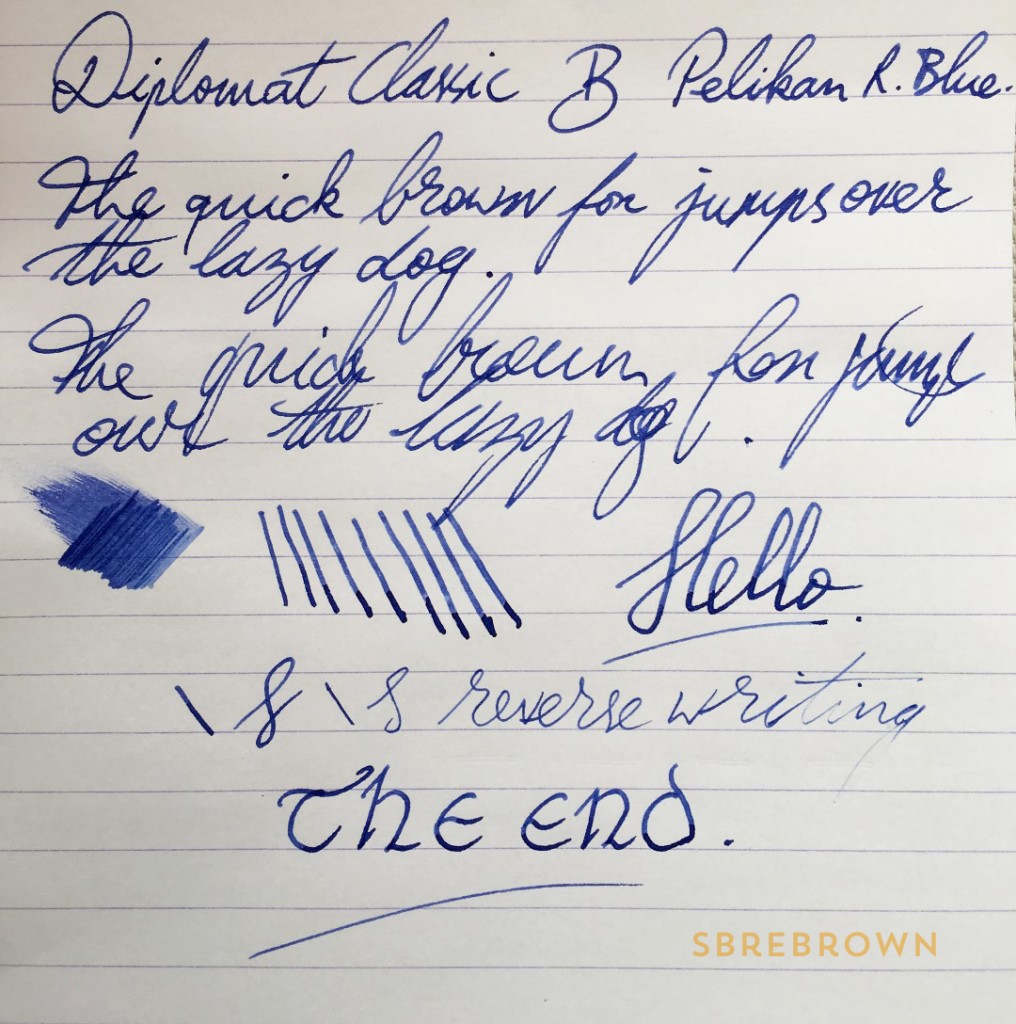 Diplomat Classic B Pelikan R. Blue.
The quick brown fox jumps over
the lazy dog.
The quick brown fox jumps
over the lazy dog.
Hello.
\ S \ S reverse writing
The end.
SBREBROWN